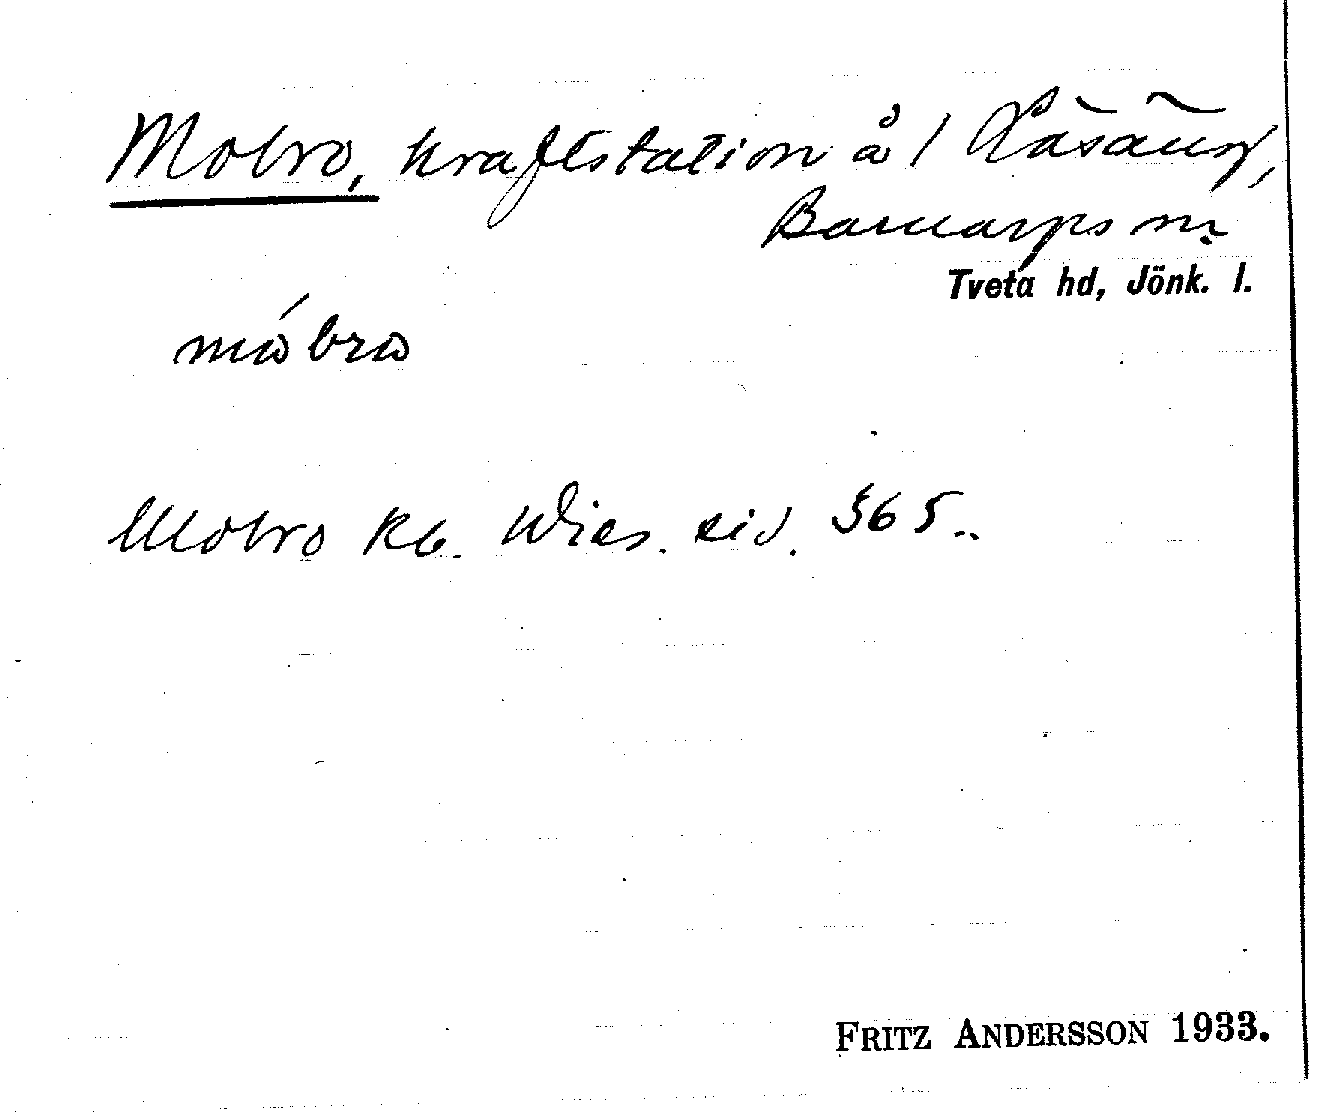 Mobro, kraftstation å 1 Råsäng,
Barnarps sn
Tveta hd, Jönk. l.
mobro
Mobro kb. Wies. sid. 365..
FRITZ ANDERSSON 1933.